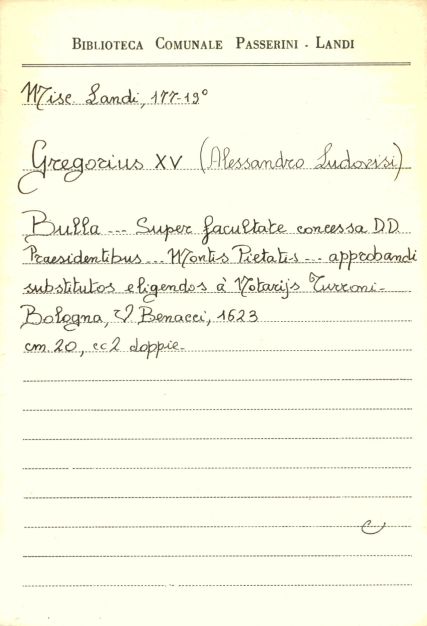 BIBLIOTECA COMUNALE PASSERINI - LANDI
Misc. Landi, 177-19°
Gregorius XV (Alessandro Ludovisi)
Bulla --- Super facultate concessa DD.
Praesidentibus --- Montis Pietatis --- approbandi
substitutos eligendos à Notarijs Turroni-
Bologna, V. Benacci, 1623
cm. 20, cc 2 doppie-